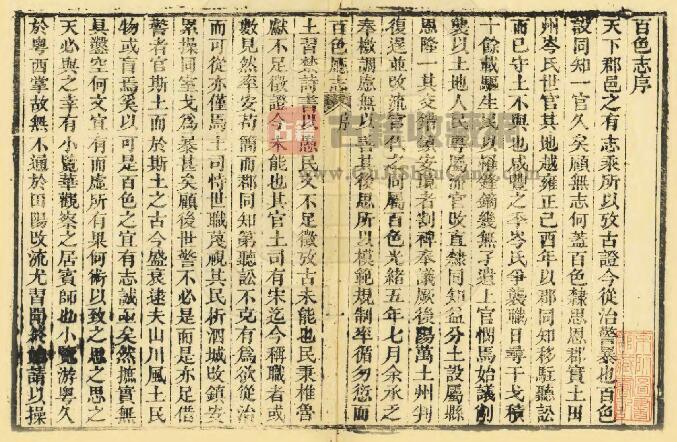 百色志序
天下郡邑之有志乘所以攷古證今從治警暴也百色
設同知一官久矣顧無志何蓋百色隸思恩郡實土田
州岑氏世官其地越雍正己酉年以郡同知移駐聽訟
而已守土不與也咸豐之季岑氏爭襲職日尋干戈積
十餘載驅生民以權鋒鏑幾無孑遺上官憫焉始議創
襲以土地人民專屬流官改直隸同知益分土設屬縣
恩隆一其交錯鎮安境者割裨奉議厥後陽萬土州判
復逆並改流官色之何屬百色光緒五年七月余承之
奉檄調處無以善其後思所以模範規制率循勿愆而
百色廳志 序
土習楚詩書以愚民文不足徵攷古未能也民秉椎魯
獻不足徵證今未能也其官土司有宋迄今稱職者或
數見然率安苟簡而郡同知第聽訟不克有為欲從治
而可從亦僅焉土司恃世職蔑視其民析泗城改鎮安
累操同室戈為暴甚矣顧後世警不必是而是亦足借
警者官斯土而於斯土之古今盛衰逮夫山川風土民
物或盲焉奚以可是百色之宜有志誠亟矣然摭實無
具鑿空何文宜有而虛所有果何術以致之思之思之
天必與之幸有小覽華觀察之居賓師也小覽游粵久
於粵西掌故無不通於田陽改流尤習聞終始請以操